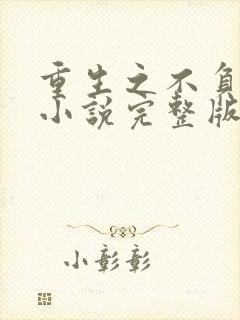 重生之不负
小说完整版
小彰彰